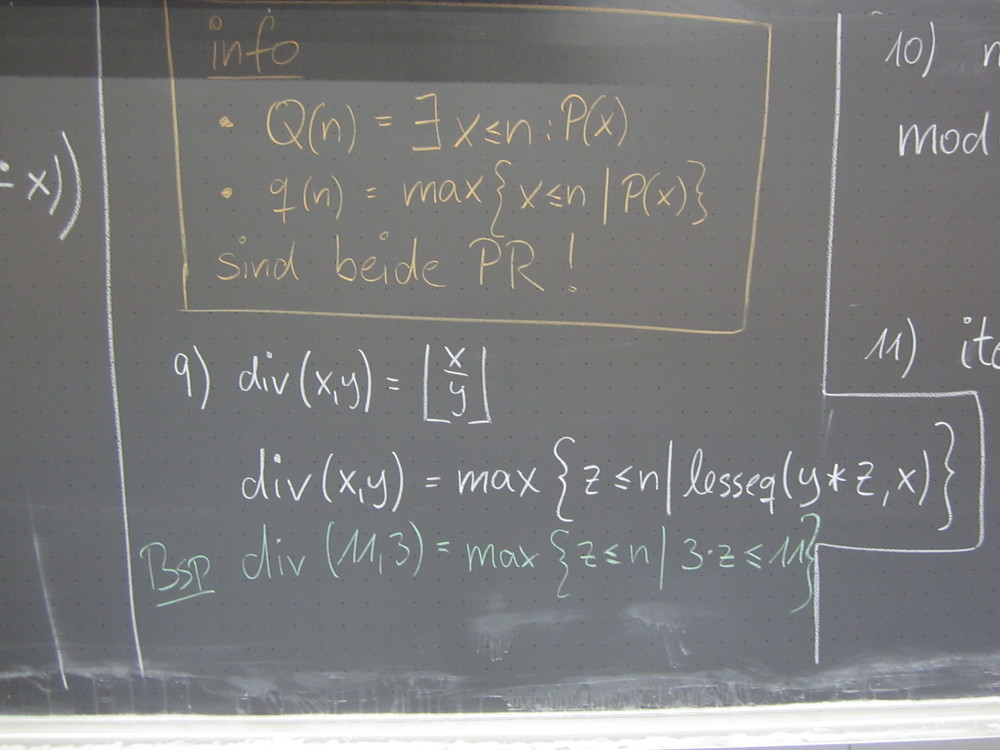 info
• Q(n) = ∃ x≤n : P(x)
• q(n) = max{x≤n | P(x)}
sind beide PR !
9) div(x,y) = ⌊x/y⌋
div(x,y) = max {z ≤ n | lesseq(y*z, x)}
Bsp div (11,3) = max {z ≤ n | 3·z ≤ 11}
x))
10)
mod
11) ite